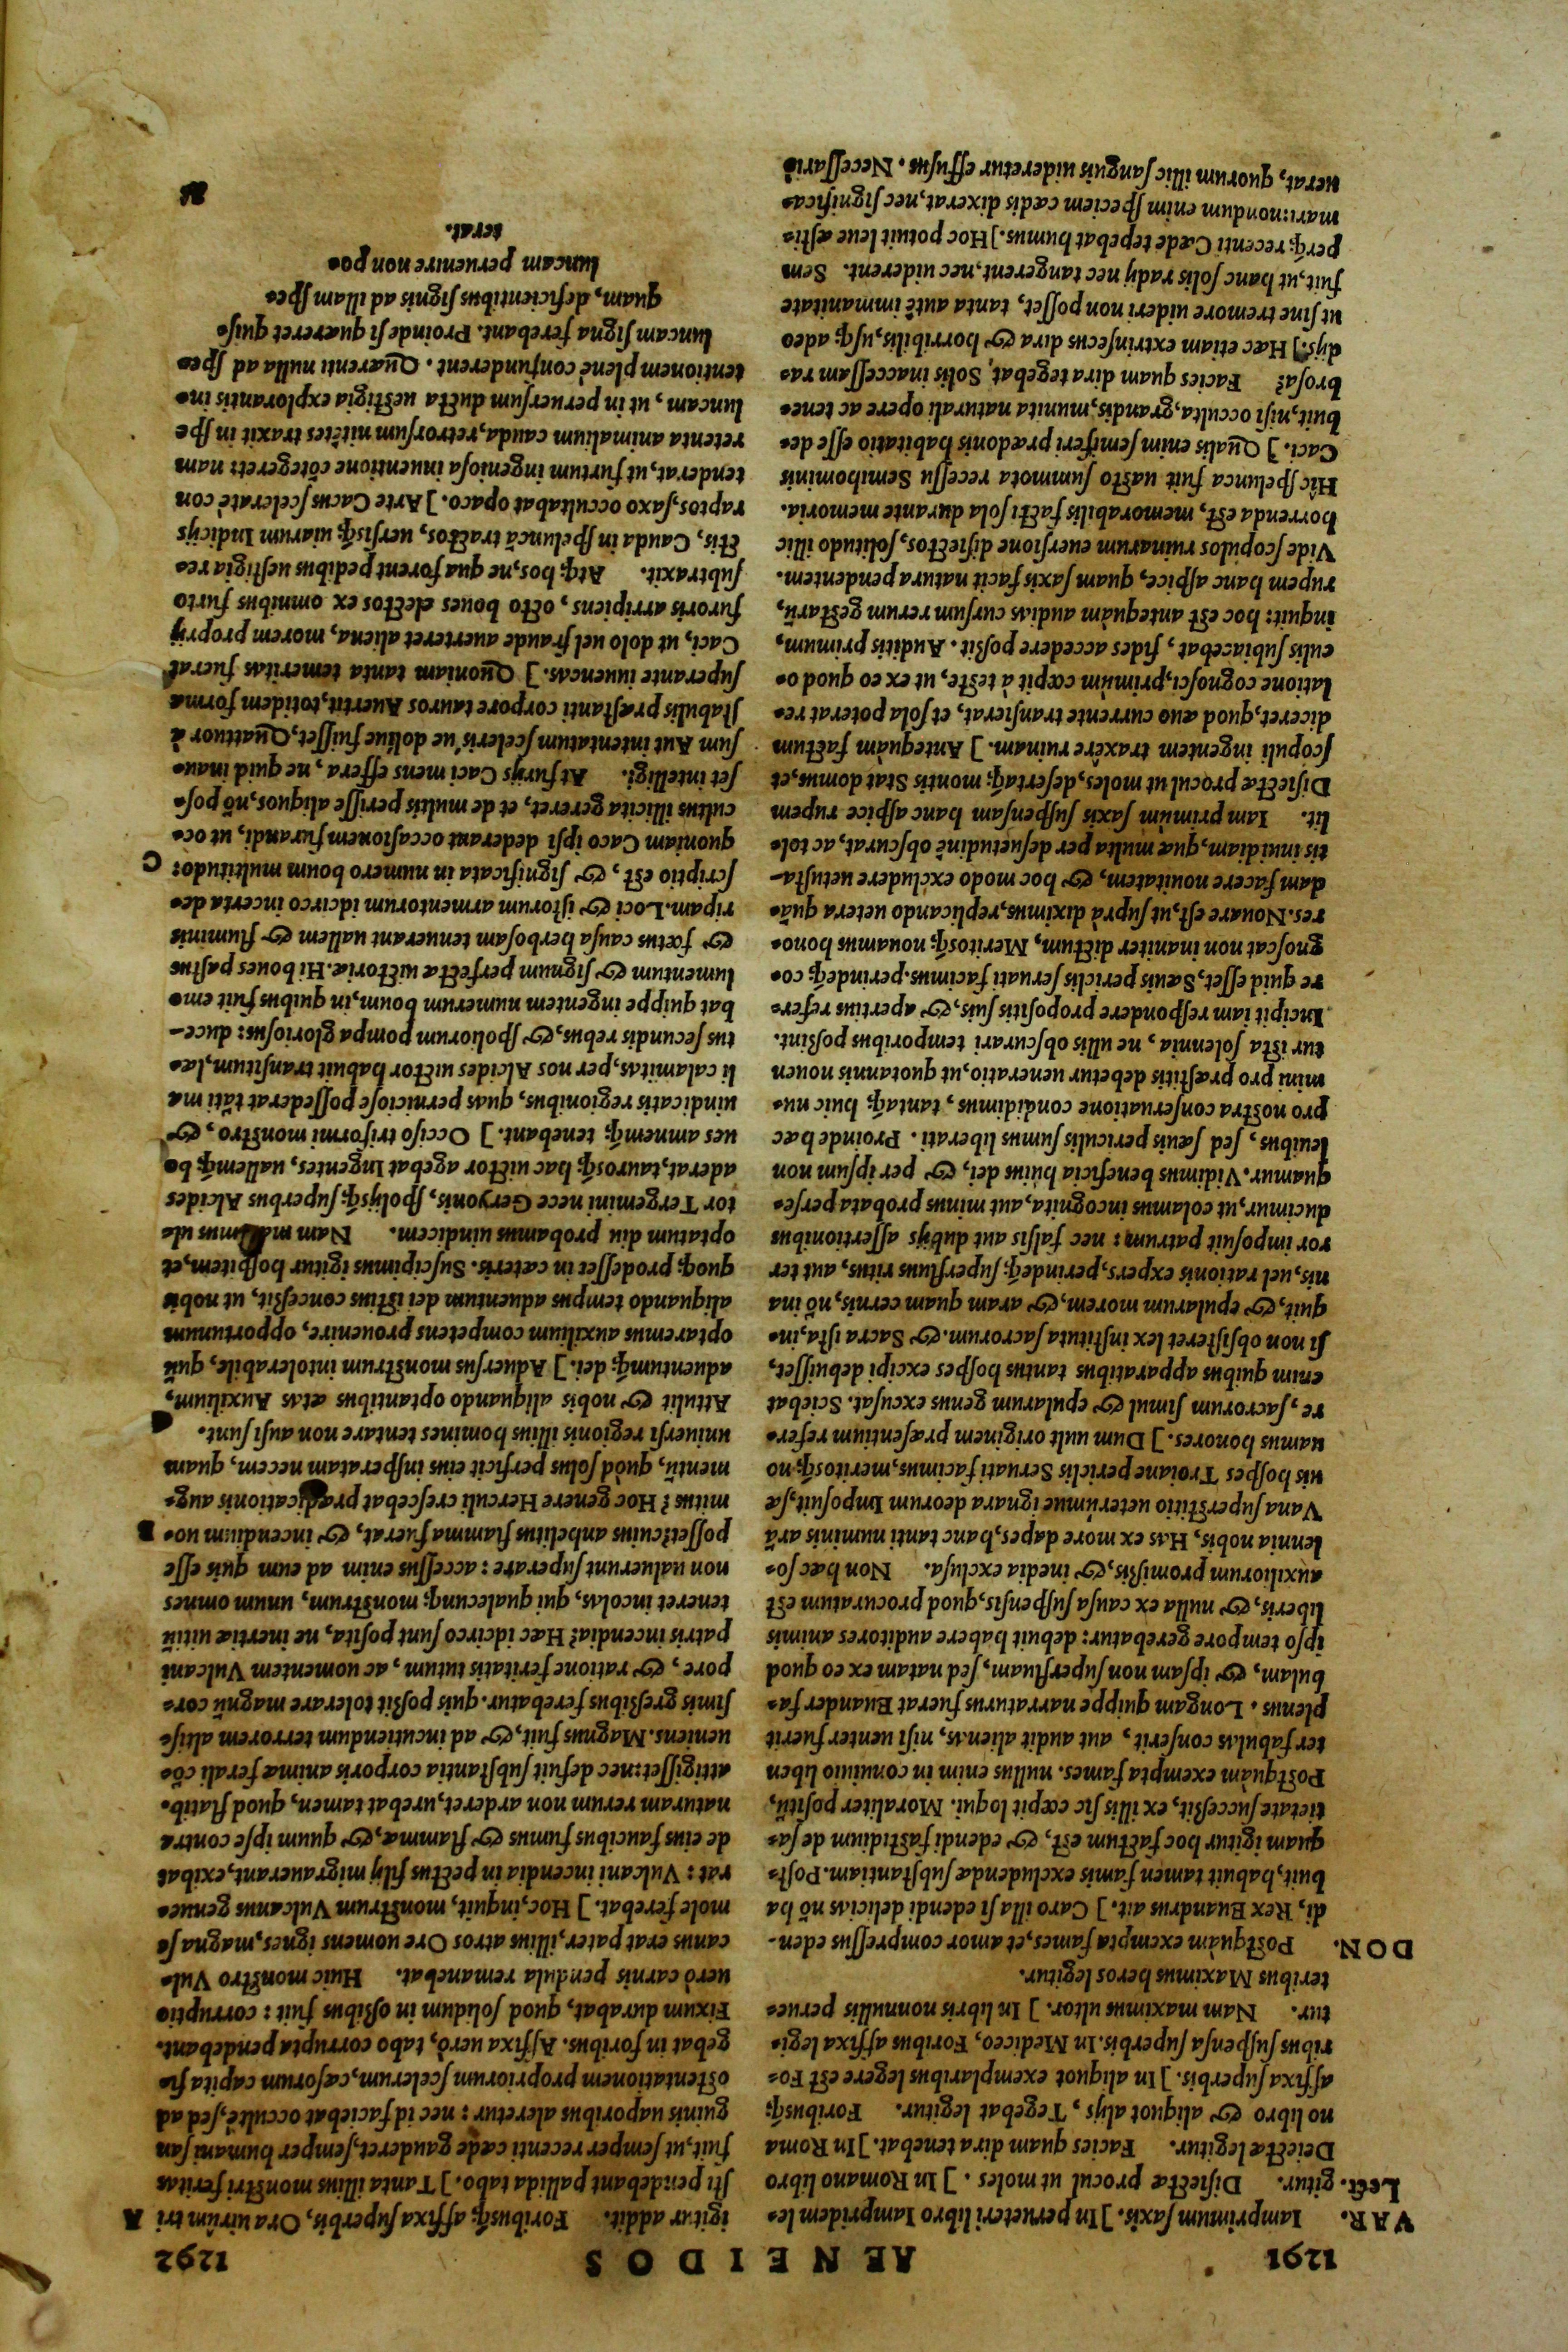 1291 AENEIDOS 1292
VAR. Iamprimum saxis.] In perueteri libro Iampridem le-
Lect. gitur. Disiectæ procul ut moles.] In Romano libro
Deiectæ legitur. Facies quam dira tenebat.] In Roma
no libro & aliquot alijs, Tegebat legitur. Foribusq́;
affixa superbis.] In aliquot exemplaribus legere est Fo-
ribus suspensa superbis. In Mediceo, Foribus affixa legi-
tur. Nam maximus ultor.] In libris nonnullis perue-
teribus Maximus heros legitur.
DON. Postquàm exempta fames, et amor compressus eden-
di, Rex Euandrus ait.] Caro illa si edendi delicias nõ ha
buit, habuit tamen famis excludendæ substantiam. Post-
quam igitur hoc factum est, & edendi fastidium de sa-
tietate successit, ex illis sic cœpit loqui. Moraliter positũ,
Postquàm exempta fames. nullus enim in conuiuio liben
ter fabulas conserit, aut audit alienas, nisi uenter fuerit
plenus. Longam quippe narraturus fuerat Euander fa-
bulam, & ipsam non superfluam, sed natam ex eo quod
ipso tempore gerebatur: debuit habere auditores animis
liberis, & nulla ex causa suspensis, quod procuratum est
auxiliorum promißis, & inedia exclusa. Non hæc so-
lennia nobis, Has ex more dapes, hanc tanti numinis arã
Vana superstitio ueterúmue ignara deorum Imposuit, sæ
uis hospes Troiane periclis Seruati facimus, meritosq́; no
uamus honores.] Dum uult originem præsentium refer-
re, sacrorum simul & epularum genus excusat. Sciebat
enim quibus apparatibus tantus hospes excipi debuisset,
si non obsisteret lex instituta sacrorum. & Sacra ista, in-
quit, & epularum morem, & aram quam cernis, nõ ina
nis, uel rationis expers, perindeq́; superfluus ritus, aut ter
ror imposuit patrum: nec falsis aut dubijs assertionibus
ducimur, ut colamus incognita, aut minus probata perse-
quamur. Vidimus beneficia huius dei, & per ipsum non
leuibus, sed sæuis periculis sumus liberati. Proinde hæc
pro nostra conseruatione condidimus, tantaq́; huic nu-
mini pro præstitis debetur ueneratio, ut quotannis nouen
tur ista solennia, ne ullis obscurari temporibus poßint.
Incipit iam respondere propositis suis, & apertius refer-
re quid esset, Sæuis periclis seruati facimus. perindeq́; co-
gnoscat non inaniter dictum, Meritosq́; nouamus hono-
res. Nouare est, ut suprà diximus, replicando uetera quã-
dam facere nouitatem, & hoc modo excludere uetusta-
tis inuidiam, quæ multa per desuetudinẽ obscurat, ac tol-
lit. Iam primùm saxis suspensam hanc aspice rupem
Disiectæ procul ut moles, desertaq́; montis Stat domus, et
scopuli ingentem traxêre ruinam.] Antequàm factum
diceret, quod æuo currente transierat, et sola poterat re-
latione cognosci, primùm cœpit à teste, ut ex eo quod o-
culis subiacebat, fides accedere poßit. Auditis primum,
inquit: hoc est antequàm audias cursum rerum gestarũ,
rupem hanc aspice, quam saxis facit natura pendentem.
Vide scopulos ruinarum euersione disiectos, solitudo illic
horrenda est, memorabilis facti sola durante memoria.
Hîc spelunca fuit uasto summota recessu Semihominis
Caci.] Qualis enim semiferi prædonis habitatio esse de-
buit, nisi occulta, grandis, munita naturali opere ac tene-
brosa? Facies quam dira tegebat, Solis inaccessam ra-
dijs.] Hæc etiam extrinsecus dira & horribilis, usq; adeo
ut sine tremore uideri non posset, tanta autẽ immanitate
fuit, ut hanc solis radij nec tangerent, nec uiderent. Sem
perq́; recenti Cæde tepebat humus.] Hoc potuit leue æsti-
mari: nondum enim speciem cædis dixerat, nec significa-
uerat, quorum illic sanguis uideretur effusus. Necessariò
igitur addit. Foribusq́; affixa superbis, Ora uirûm tri A
sti pendebant pallida tabo.] Tanta illius monstri feritas
fuit, ut semper recenti cæde gauderet, semper humani san
guinis uaporibus aleretur: nec id faciebat occultè, sed ad
ostentationem propriorum scelerum, cæsorum capita fi-
gebat in foribus. Affixa uerò, tabo corrupta pendebant.
Fixum durabat, quod solidum in oßibus fuit: corruptio
uerò carnis pendula remanebat. Huic monstro Vul-
canus erat pater, illius atros Ore uomens ignes, magna se
mole ferebat.] Hoc, inquit, monstrum Vulcanus genue-
rat: Vulcani incendia in pectus filij migrauerant, exibat
de eius faucibus fumus & flammæ, & quum ipse contra
naturam rerum non arderet, urebat tamen, quod flatib.
attigisset: nec defuit substantia corporis animæ ferali cõ-
ueniens. Magnus fuit, & ad incutiendum terrorem altiß-
simis greßibus ferebatur. quis poßit tolerare magnũ cor-
pore, & ratione feritatis tutum, ac uomentem Vulcani
patris incendia? Hæc idcirco sunt posita, ne inertiæ uitiũ
teneret incolas, qui qualecunq; monstrum, unum omnes
non ualuerunt superare: accessus enim ad eum quis esse
posset? cuius anhelitus flamma fuerat, & incendium uo- B
mitus? Hoc genere Herculi crescebat prædicationis aug-
mentũ, quòd solus perficit eius insperatam necem, quam
uniuersi regionis illius homines tentare non ausi sunt.
Attulit & nobis aliquando optantibus ætas Auxilium,
aduentumq́; dei.] Aduersus monstrum intolerabile, quũ
optaremus auxilium competens prouenire, opportunum
aliquando tempus aduentum dei istius conceßit, ut nobis
quoq; prodesset in cæteris. Suscipimus igitur hospitem, et
optatum diu probamus uindicem. Nam maximus ul-
tor Tergemini nece Geryonis, spolijsq́; superbus Alcides
aderat, taurosq́; hac uictor agebat Ingentes, uallemq́; bo
ues amnemq́; tenebant.] Occiso triformi monstro, &
uindicatis regionibus, quas perniciose possederat tãti ma
li calamitas, per nos Alcides uictor habuit transitum, læ-
tus secundis rebus, & spoliorum pompa gloriosus: duce-
bat quippe ingentem numerum boum, in quibus fuit emo
lumentum & signum perfectæ uictoriæ. Hi boues pastus
& fœtus causa herbosam tenuerant uallem & fluminis
ripam. Loci & istorum armentorum idcirco incerta de-
scriptio est, & significata in numero boum multitudo: C
quoniam Caco ipsi dederant occasionem furandi, ut oc-
cultus illicita gereret, et de multis perisse aliquos, nõ pos-
set intelligi. At furijs Caci mens effera, ne quid inau-
sum Aut intentatum sceleris'ue doliue fuisset, Quattuor à
stabulis præstanti corpore tauros Auertit, totidem forma
superante iuuencas.] Quoniam tanta temeritas fuerat
Caci, ut dolo uel fraude auerteret aliena, morem proprij
furoris arripiens, octo boues electos ex omnibus furto
subtraxit. Atq; hos, ne qua forent pedibus uestigia re-
ctis, Cauda in speluncã tractos, uersisq́; uiarum Indicijs
raptos, saxo occultabat opaco.] Arte Cacus sceleratè con
tenderat, ut furtum ingeniosa inuentione cõtegeret: nam
retenta animalium cauda, retrorsum nitẽtes traxit in spe
luncam, ut in peruersum ducta uestigia explorantis in-
tentionem plenè confunderent. Quærenti nulla ad spe-
luncam signa ferebant. Proinde si quæreret quis-
quam, deficientibus signis ad illam spe-
luncam peruenire non po-
terat.